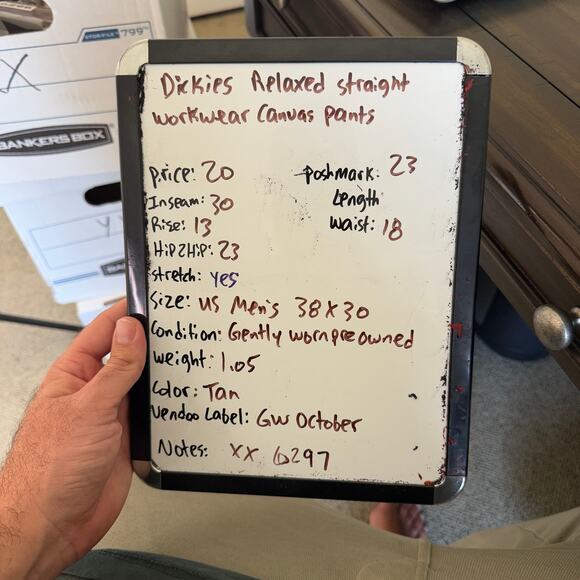 STOR/FILE™ 799™
X
BANKERS BOX
Dickies Relaxed straight
workwear Canvas pants
price: 20
Poshmark: 23
Inseam: 30
Length
Rise: 13
Waist: 18
Hip2Hip: 23
stretch: yes
Size: US Men's 38x30
Condition: Gently worn pre owned
Weight: 1.05
Color: Tan
Vendoo Label: GW October
Notes: XX 6297